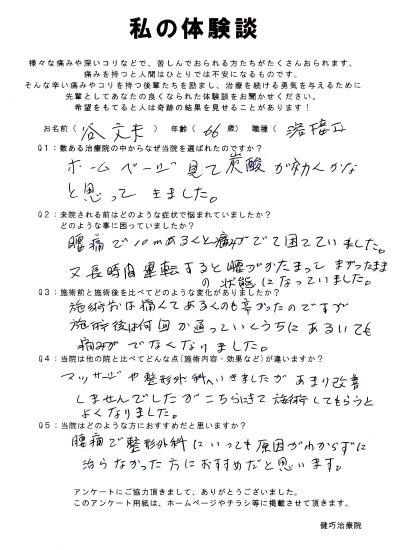 私の体験談
様々な痛みや深いコリなどで、苦しんでおられる方たちがたくさんおられます。
痛みを持つと人間はひとりでは不安になるものです。
そんな辛い痛みやコリを持つ後輩たちを励まし、治療を続ける勇気を与えるために
先輩としてあなたの良くなられた体験談をお聞かせください。
希望をもてると人は奇跡の結果を見せることがあります！
お名前（谷 文夫）年齢（66歳）職種（溶接工
Q1：数ある治療院の中からなぜ当院を選ばれたのですか？
ホームページ見て炭酸が効くかな
と思ってきました。
Q2：来院される前はどのような症状で悩まれていましたか？
どのような事に困っていましたか？
腰痛で10mあるくと痛みがでて困っていました。
又長時間運転すると腰がかたまってまがったまま
の状態になっていました。
Q3：施術前と施術後を比べてどのような変化がありましたか？
施術前は痛くてあるくのも辛かったのですが
施術後は何回か通っていくうちにあるいても
痛みがでなくなりました。
Q4：当院は他の院と比べてどんな点(施術内容・効果など)が違いますか？
マッサージや整形外科へいきましたがあまり改善
しませんでしたがこちらにきて施術してもらうと
よくなりました。
Q5：当院はどのような方におすすめだと思いますか？
腰痛で整形外科にいっても原因がわからずに
治らなかった方におすすめだと思います。
アンケートにご協力頂きまして、ありがとうございました。
このアンケート用紙は、ホームページやチラシ等に掲載させて頂きます。
健巧治療院